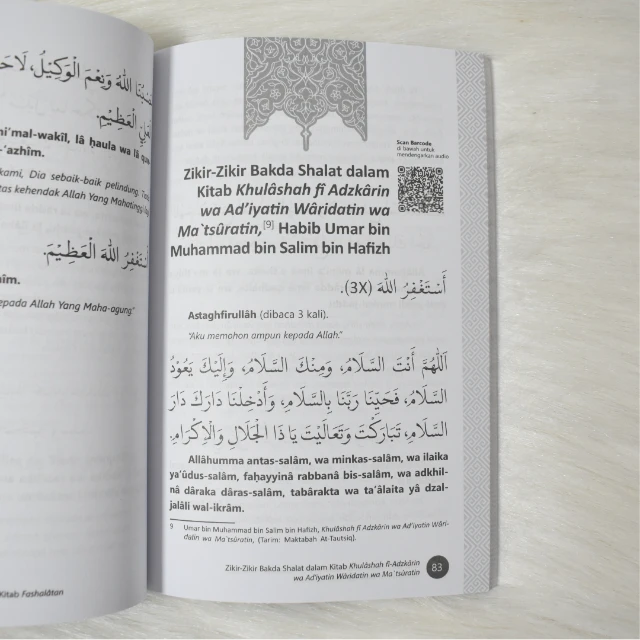 اللهُ وَنِعْمَ الْوَكِيْلُ، لَاحَ
الْعَظِيْمِ.
ni'mal-wakîl, lâ ḥaula wa lâ qu
-'azhîm.
kami, Dia sebaik-baik pelindung. Tiada
tas kehendak Allah Yang Mahatinggi
أَسْتَغْفِرُ اللهَ الْعَظِيْمَ.
îm.
epada Allah Yang Maha-agung."
Kitab Fashalâtan
Scan Barcode
di bawah untuk
mendengarkan audio
Zikir-Zikir Bakda Shalat dalam
Kitab Khulâshah fî Adzkârin
wa Ad'iyatin Wâridatin wa
Ma`tsûratin,[9] Habib Umar bin
Muhammad bin Salim bin Hafizh
أَسْتَغْفِرُ اللهَ (3X).
Astaghfirullâh (dibaca 3 kali).
"Aku memohon ampun kepada Allah."
اَللّٰهُمَّ أَنْتَ السَّلَامُ، وَمِنْكَ السَّلَامُ، وَإِلَيْكَ يَعُوْدُ
السَّلَامُ، فَحَيِّنَا رَبَّنَا بِالسَّلَامِ، وَأَدْخِلْنَا دَارَكَ دَارَ
السَّلَامِ، تَبَارَكْتَ وَتَعَالَيْتَ يَا ذَا الْجَلَالِ وَالْإِكْرَامِ.
Allâhumma antas-salâm, wa minkas-salâm, wa ilaika
ya'ûdus-salâm, faḥayyinâ rabbanâ bis-salâm, wa adkhil-
nâ dâraka dâras-salâm, tabârakta wa ta'âlaita yâ dzal-
jalâli wal-ikrâm.
9 Umar bin Muhammad bin Salim bin Hafizh, Khulâshah fî Adzkârin wa Ad'iyatin Wâri-
datin wa Ma`tsûratin, (Tarim: Maktabah At-Tautsiq).
Zikir-Zikir Bakda Shalat dalam Kitab Khulâshah fî-Adzkârin
wa Ad'iyatin Wâridatin wa Ma`tsûratin
83